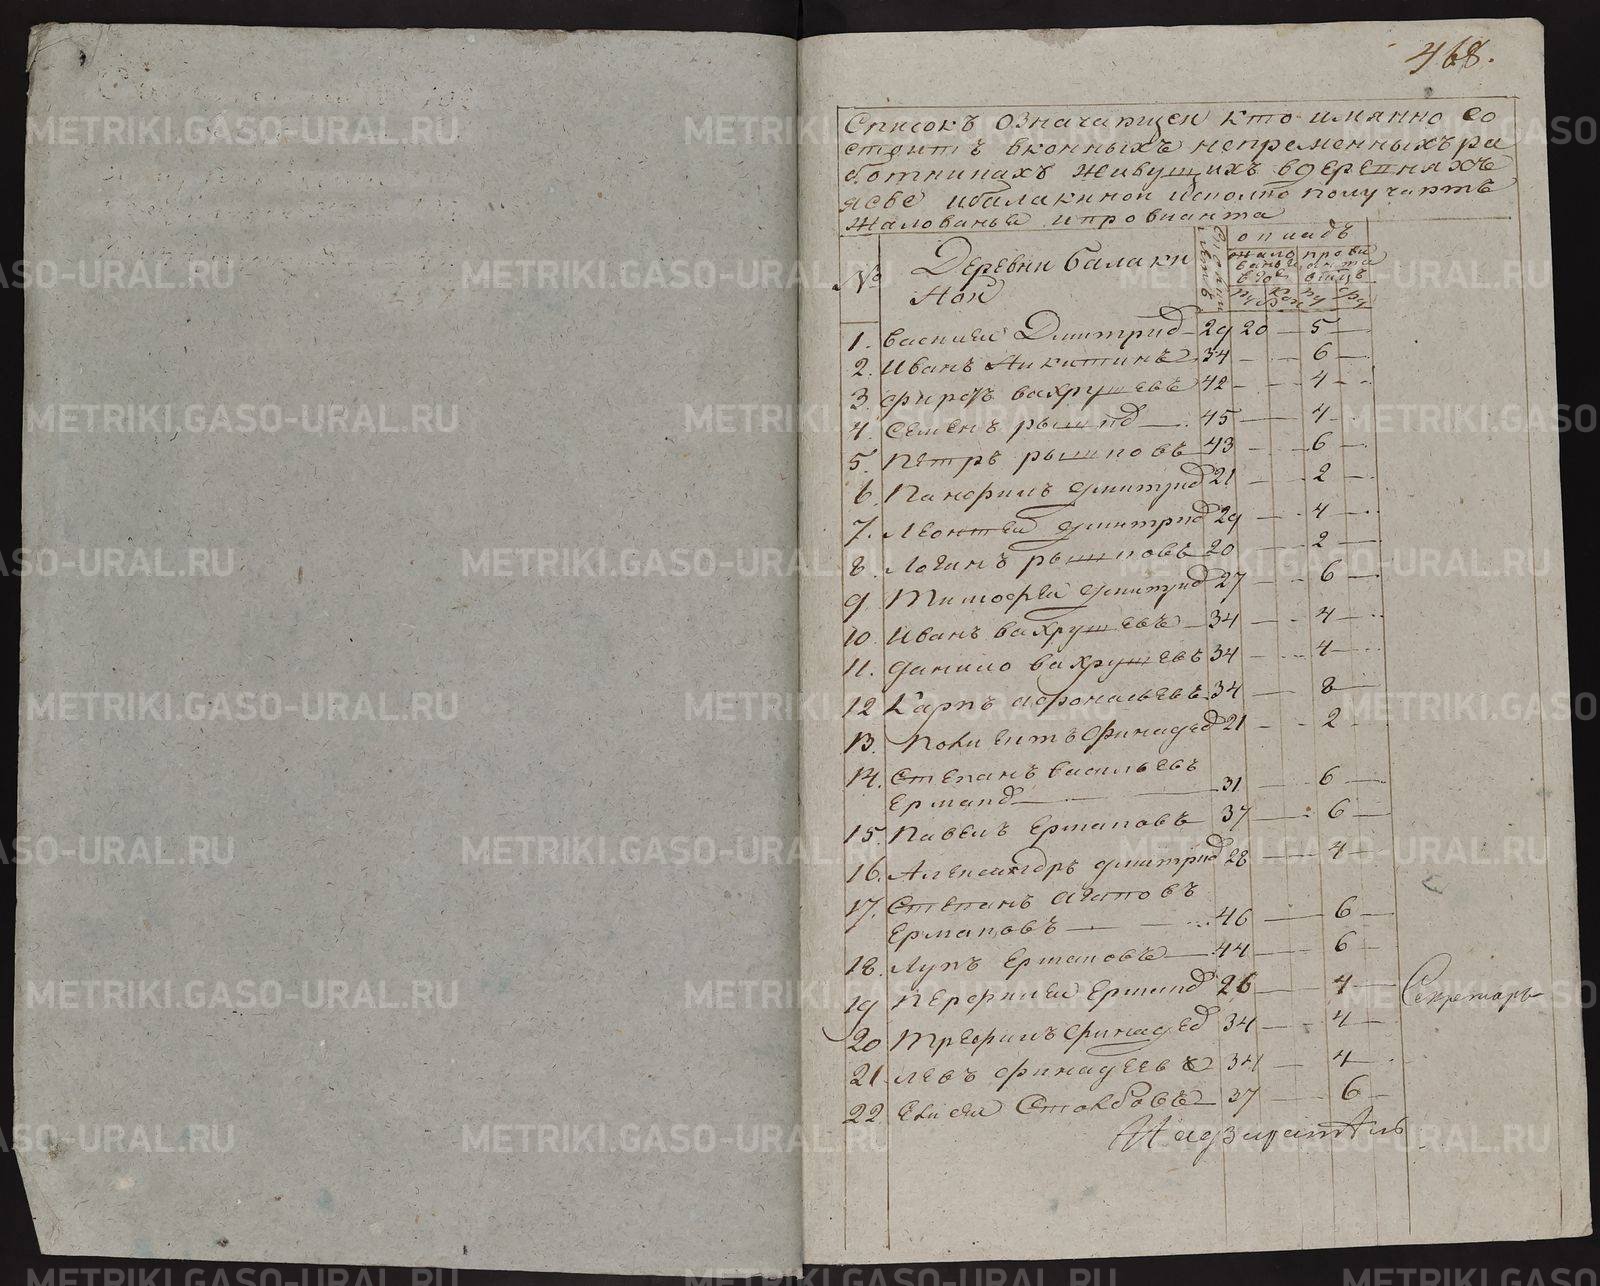 468.
Списокъ означающеи кто имянно со
стоитъ вконныхъ непременныхъ ра
ботникахъ живущихъ вдеревняхъ
ясве ибалакиной исколко получаютъ
жалованья ипровианта
№
Деревни балаки
ной
окладъ
жало
ванья
вгод
прови
анта
1. василеи Дмитриев 29 20 — 5 —
2. Иванъ Никитинъ 34 — 6 —
3. фирсъ вахрушевъ 42 — 4 —
4. Семенъ рышков 45 — 4 —
5. Петръ рышковъ 43 — 6 —
6. Панфилъ дмитриев 21 — 2 —
7. Леонтеи дмитриев 29 — 4 —
8. Логинъ рышковъ 20 — 2 —
9. Тимофеи дмитриев 27 — 6 —
10. Иванъ вахрушевъ 34 — 4 —
11. данило вахрушевъ 34 — 4 —
12. Карпъ афонасьевъ 34 — 8 —
13. финадеев 21 — 2 —
14. Степанъ васильевъ
Ермаков 31 — 6 —
15. Павелъ Ермаковъ 37 — 6 —
16. Александръ дмитриев 28 — 4 —
17. Степанъ агаповъ
Ермаковъ 46 — 6 —
18. Лупъ Ермаковъ 44 — 6 —
19 перфилеи Ермаков 26 — 4 —
20 Трефилъ финадеев 34 — 4 —
21 левъ финадеевъ 34 — 4 —
22 елисеи Столбовъ 37 — 6 —
Секретарь
Надзиратель
METRIKI.GASO-URAL.RU